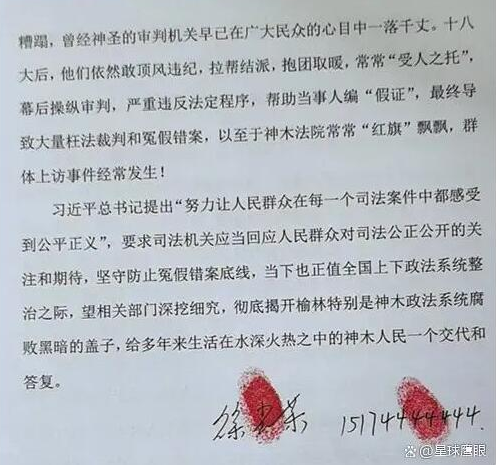 糟蹋，曾经神圣的审判机关早已在广大民众的心目中一落千丈。十八
大后，他们依然敢顶风违纪，拉帮结派，抱团取暖，常常“受人之托”，
幕后操纵审判，严重违反法定程序，帮助当事人编“假证”，最终导
致大量枉法裁判和冤假错案，以至于神木法院常常“红旗”飘飘，群
体上访事件经常发生！
习近平总书记提出“努力让人民群众在每一个司法案件中都感受
到公平正义”，要求司法机关应当回应人民群众对司法公正公开的关
注和期待，坚守防止冤假错案底线，当下也正值全国上下政法系统整
治之际，望相关部门深挖细究，彻底揭开榆林特别是神木政法系统腐
败黑暗的盖子，给多年来生活在水深火热之中的神木人民一个交代和
答复。
徐 荣 15174444444.
@星球鹰眼